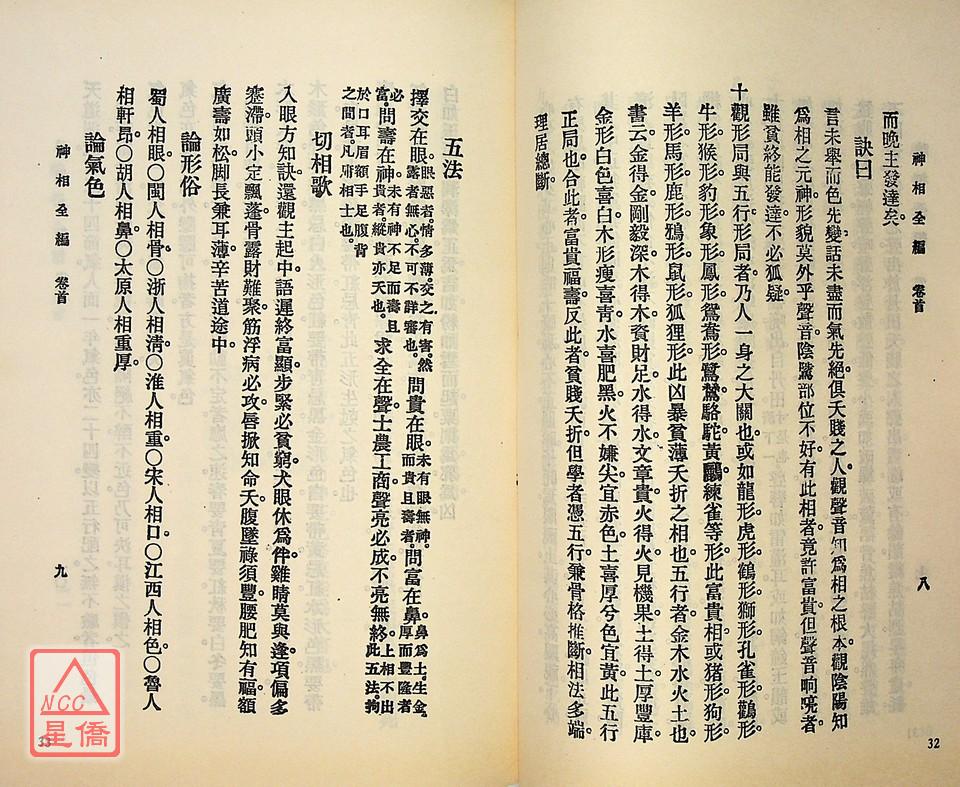 神相全編 卷首
八
32
而晚主發達矣。
訣曰
言未舉而色先變話未盡而氣先絕俱夭賤之人觀聲音知為相之根本觀陰陽知
為相之元神形貌莫外乎聲音陰騭部位不好有此相者竟許富貴但聲音响喨者
雖貧終能發達不必狐疑。
十觀形局與五行形局者乃人一身之大關也或如龍形虎形鶴形獅形孔雀形鸛形
牛形猴形豹形象形鳳形鴛鴦形鷺鷥駱駝黃鸝練雀等形此富貴相或豬形狗形
羊形馬形鹿形鴉形鼠形狐狸形此凶暴貧薄夭折之相也五行者金木水火土也
書云金得金剛毅深木得木資財足水得水文章貴火得火見機果土得土厚豐庫
金形白色喜白木形瘦喜靑水喜肥黑火不嫌尖宜赤色土喜厚兮色宜黃此五行
正局也合此者富貴福壽反此者貧賤夭折但學者憑五行兼骨格推斷相法多端
理居總斷。
五法
擇交在眼。眼惡者。情多薄。交之有害。然露者無心。不可不詳審也。問貴在眼。未有眼無神。而貴且壽者。問富在鼻。鼻為土。生金。厚而豐隆者
必富。問壽在神。未有神不足而壽且貴者。縱貴亦夭也。求全在聲。士農工商。聲亮必成。不亮無終。此五法。拘上相不出
於口耳眉額手足腹背之間者。凡庸相士也。
切相歌
入眼方知訣還觀主起中。語遲終富顯步緊必貧窮。犬眼休為伴雞睛莫與逢。項偏多
蹇滯頭小定飄蓬。骨露財難聚筋浮病必攻。唇掀知命夭腹墜祿須豐。腰肥知有福額
廣壽如松。脚長兼耳薄辛苦道途中。
論形俗
蜀人相眼。○閩人相骨。○浙人相淸。○淮人相重。○宋人相口。○江西人相色。○魯人
相軒昂。○胡人相鼻。○太原人相重厚。
論氣色
神相全編 卷首
九
33
NCC
星僑